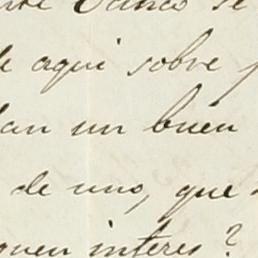 Banco se
de aqui sobre
dan un buen
de uno, que
guen interes?